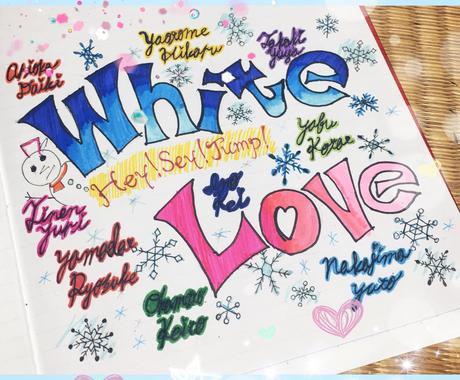 Arioka
Daiki
Yaotome
Hikaru
Takaki
Yuya
White
Hey! Sey! Jump!
Yabu
Kei
Love
Yuri
Yamada
Ryosuke
Okamoto
Keito
Nakajima
Yuto